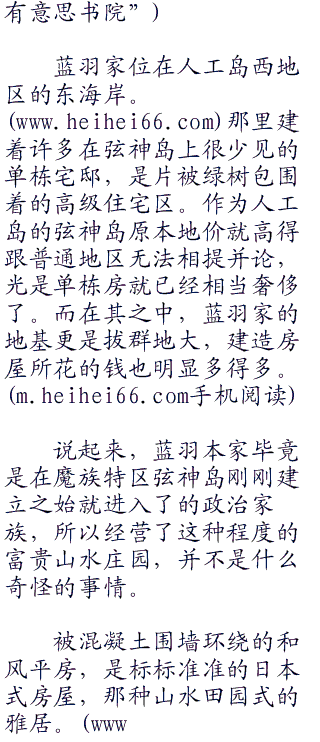 有意思书院”)
蓝羽家位在人工岛西地
区的东海岸。
(www.heihei66.com)那里建
着许多在弦神岛上很少见的
单栋宅邸，是片被绿树包围
着的高级住宅区。作为人工
岛的弦神岛原本地价就高得
跟普通地区无法相提并论，
光是单栋房就已经相当奢侈
了。而在其之中，蓝羽家的
地基更是拔群地大，建造房
屋所花的钱也明显多得多。
(m.heihei66.com手机阅读)
说起来，蓝羽本家毕竟
是在魔族特区弦神岛刚刚建
立之始就进入了的政治家
族，所以经营了这种程度的
富贵山水庄园，并不是什么
奇怪的事情。
被混凝土围墙环绕的和
风平房，是标标准准的日本
式房屋，那种山水田园式的
雅居。(www